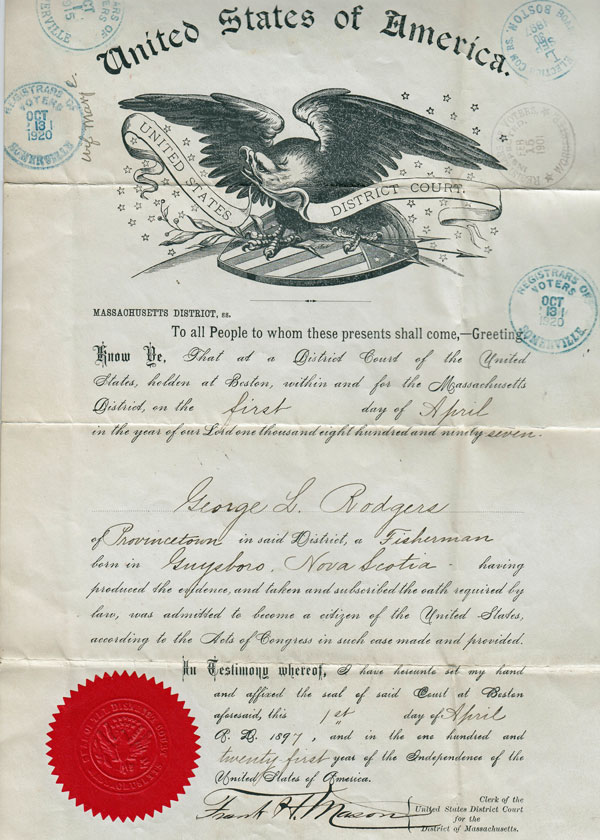 United States of America.
REGISTRARS OF
VOTERS
OCT
13
1920
SOMERVILLE
UNITED STATES
DISTRICT COURT.
REGISTRARS OF
VOTERS
OCT
13
1920
SOMERVILLE
MASSACHUSETTS DISTRICT, ss.
To all People to whom these presents shall come,—Greeting.
Know Ye, That at a District Court of the United
States, holden at Boston, within and for the Massachusetts
District, on the first day of April
in the year of our Lord one thousand eight hundred and ninety seven.
George L. Rodgers
of Provincetown in said District, a Fisherman
born in Guysboro, Nova Scotia - having
produced the evidence, and taken and subscribed the oath required by
law, was admitted to become a citizen of the United States,
according to the Acts of Congress in such case made and provided.
In Testimony whereof, I have hereunto set my hand
and affixed the seal of said Court at Boston
aforesaid, this 1st day of April
A. D. 1897, and in the one hundred and
twenty first year of the Independence of the
United States of America.
Frank H. Mason
Clerk of the
United States District Court
for the
District of Massachusetts.